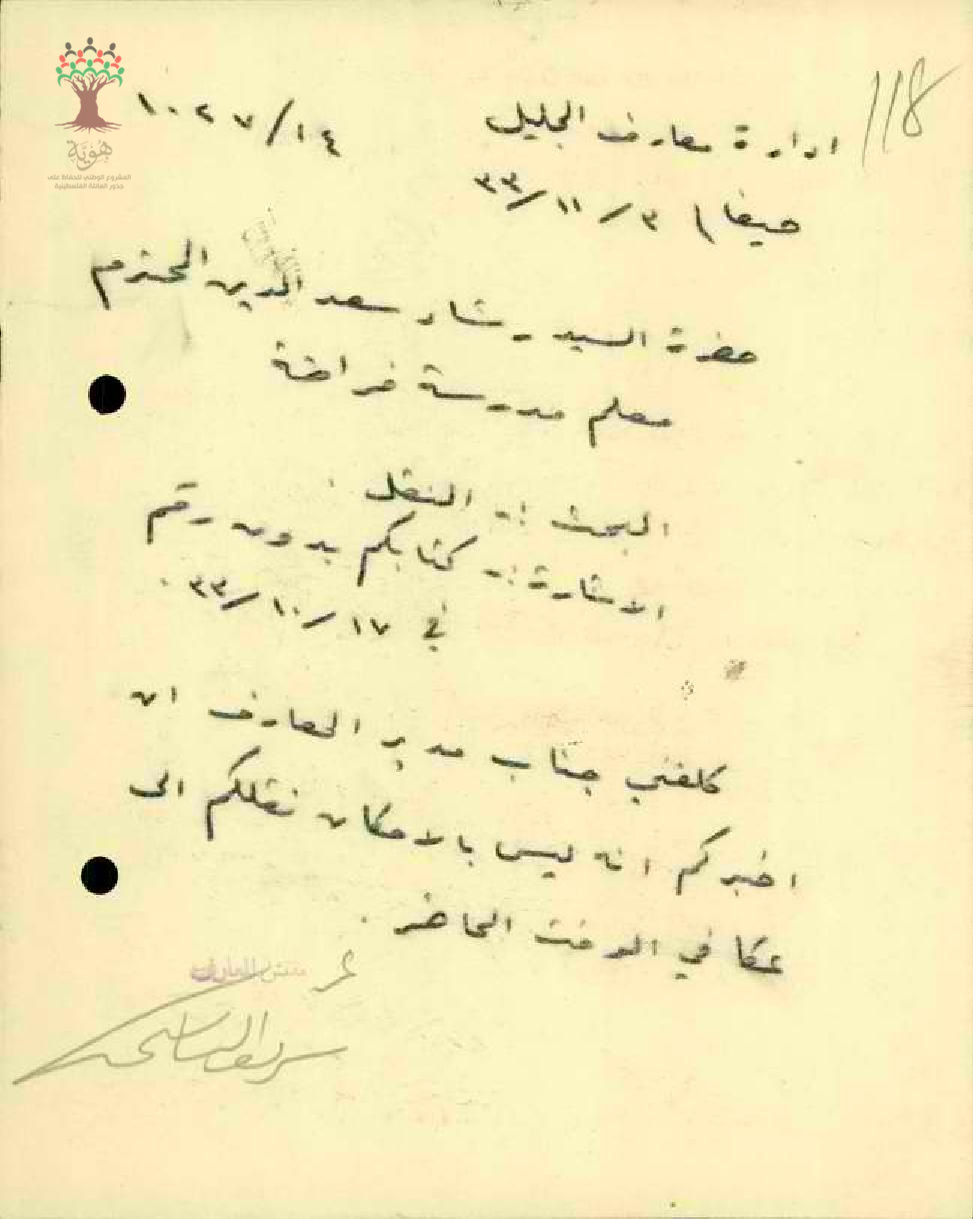 118
ادارة معارف الجليل ١٠٢٧/١٤
حيفا ٣/١١/٣٣
حضرة السيد رشاد سعد الدين المحترم
معلم مدرسة فراضة
البحث :- النقل
الاشارة :- كتابكم بدون رقم
في ١٧/١٠/٣٣.
كلفني جناب مدير المعارف ان
اخبركم انه ليس بالامكان نقلكم الى
عكا في الوقت الحاضر.
مفتش المعارف
هوية
المشروع الوطني للحفاظ على
جذور العائلة الفلسطينية